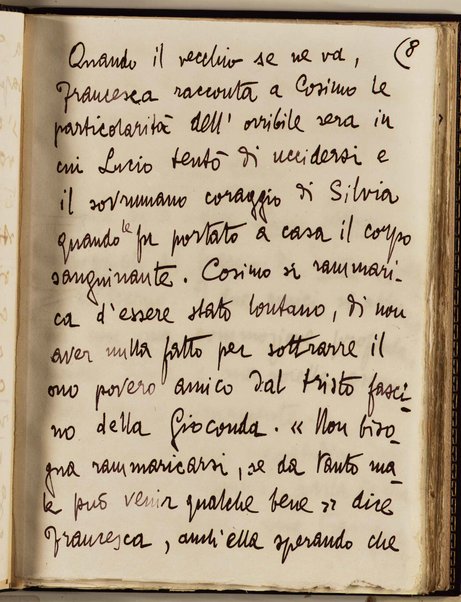 (8
Quando il vecchio se ne va,
Francesca racconta a Cosimo le
particolarità dell'orribile sera in
cui Lucio tentò di uccidersi e
il sovrumano coraggio di Silvia
quando le fu portato a casa il corpo
sanguinante. Cosimo si rammari-
ca d'essere stato lontano, di non
aver nulla fatto per sottrarre il
suo povero amico dal tristo fasci-
no della Gioconda. « Non biso-
gna rammaricarsi, se da tanto ma-
le può venir qualche bene » dice
Francesca, anch'ella sperando che